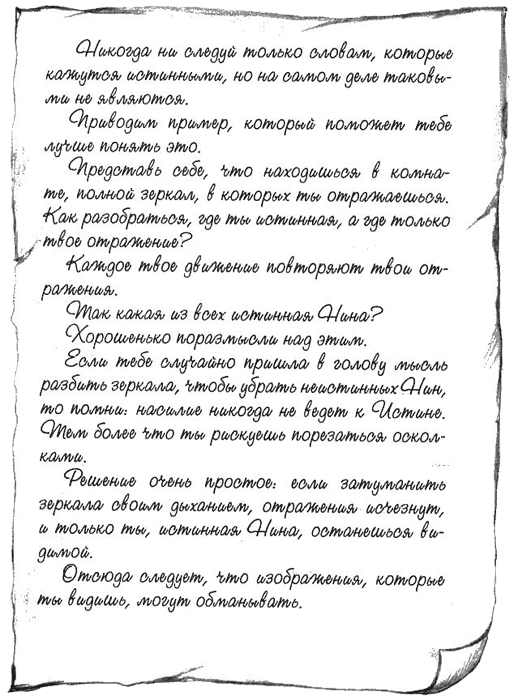 Никогда ни следуй только словам, которые
кажутся истинными, но на самом деле таковы-
ми не являются.
Приводим пример, который поможет тебе
лучше понять это.
Представь себе, что находишься в комна-
те, полной зеркал, в которых ты отражаешься.
Как разобраться, где ты истинная, а где только
твое отражение?
Каждое твое движение повторяют твои от-
ражения.
Так какая из всех истинная Нина?
Хорошенько поразмысли над этим.
Если тебе случайно пришла в голову мысль
разбить зеркала, чтобы убрать неистинных Нин,
то помни: насилие никогда не ведет к Истине.
Тем более что ты рискуешь порезаться оскол-
ками.
Решение очень простое: если затуманить
зеркала своим дыханием, отражения исчезнут,
и только ты, истинная Нина, останешься ви-
димой.
Отсюда следует, что изображения, которые
ты видишь, могут обманывать.